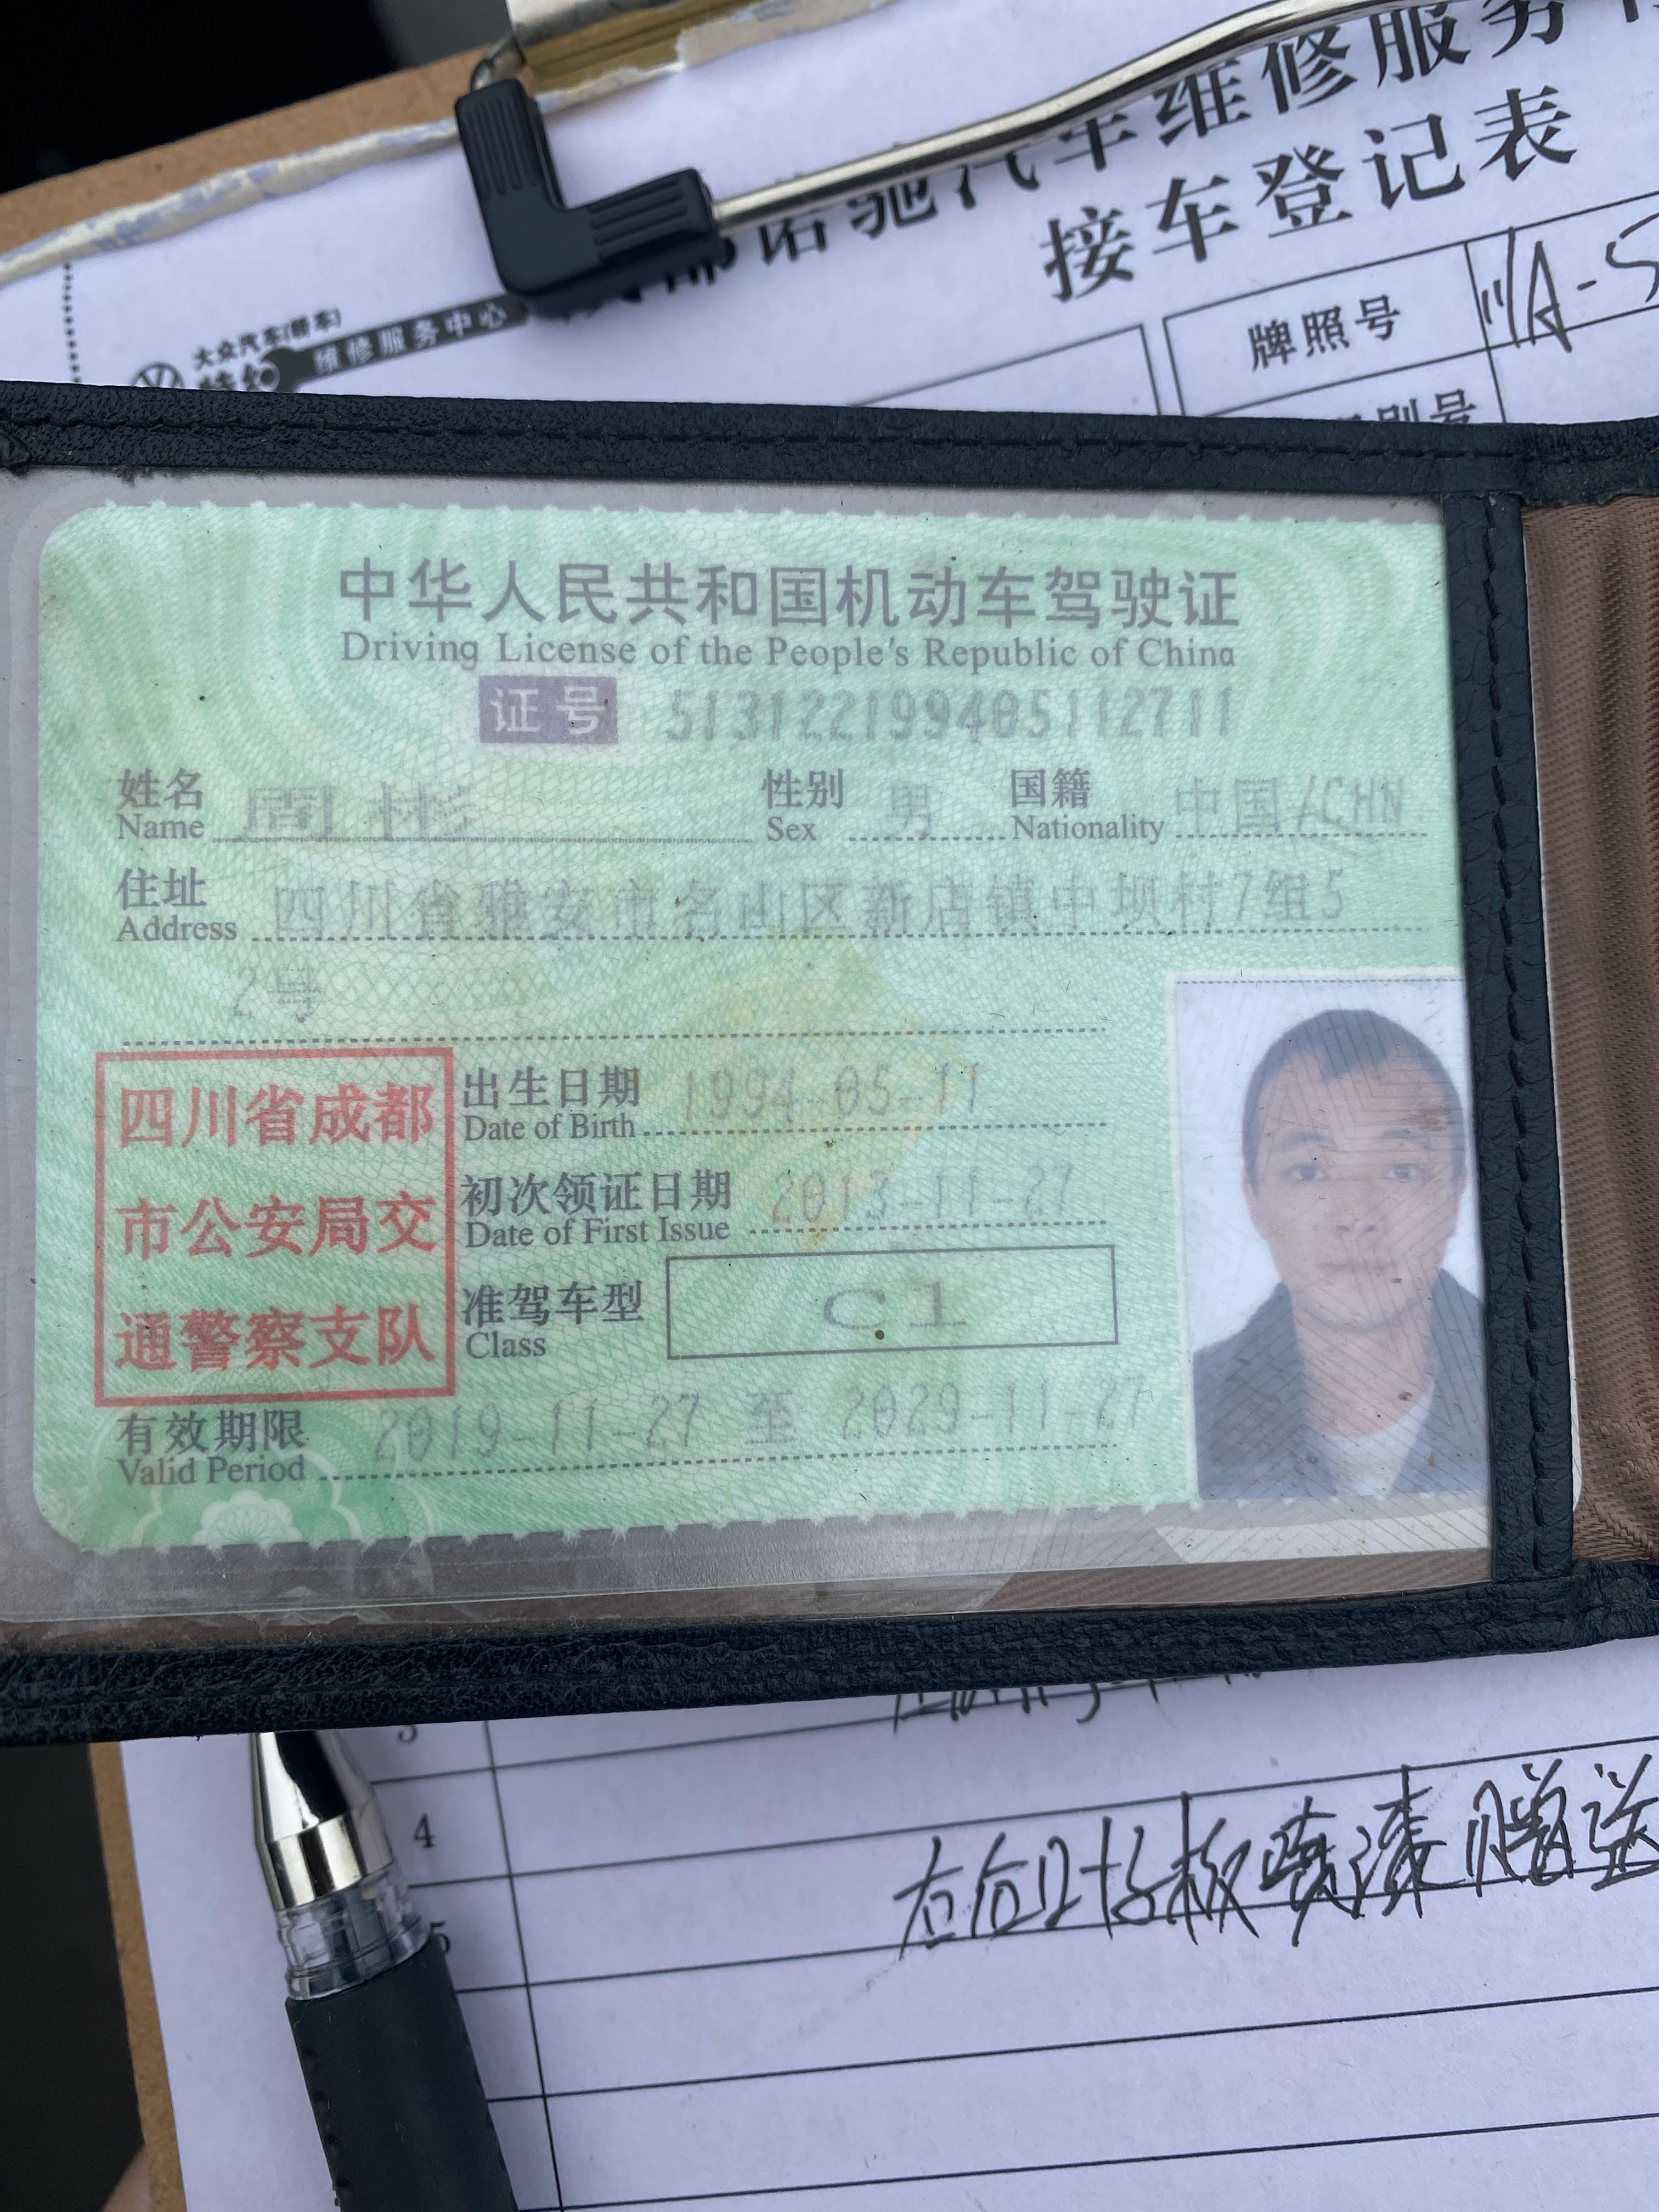 诺驰汽车维修服务
接车登记表
大众汽车(轿车)
特约
维修服务中心
牌照号
川A-S
中华人民共和国机动车驾驶证
Driving License of the People's Republic of China
证号 513122199405112711
姓名 周彬 性别 男 国籍 中国/CHN
Name Sex Nationality
住址 四川省雅安市名山区新店镇中坝村7组5
Address
2号
四川省成都
市公安局交
通警察支队
出生日期 1994-05-11
Date of Birth
初次领证日期 2013-11-27
Date of First Issue
准驾车型 C1
Class
有效期限 2019-11-27 至 2029-11-27
Valid Period
3
4
5
喷漆赠送